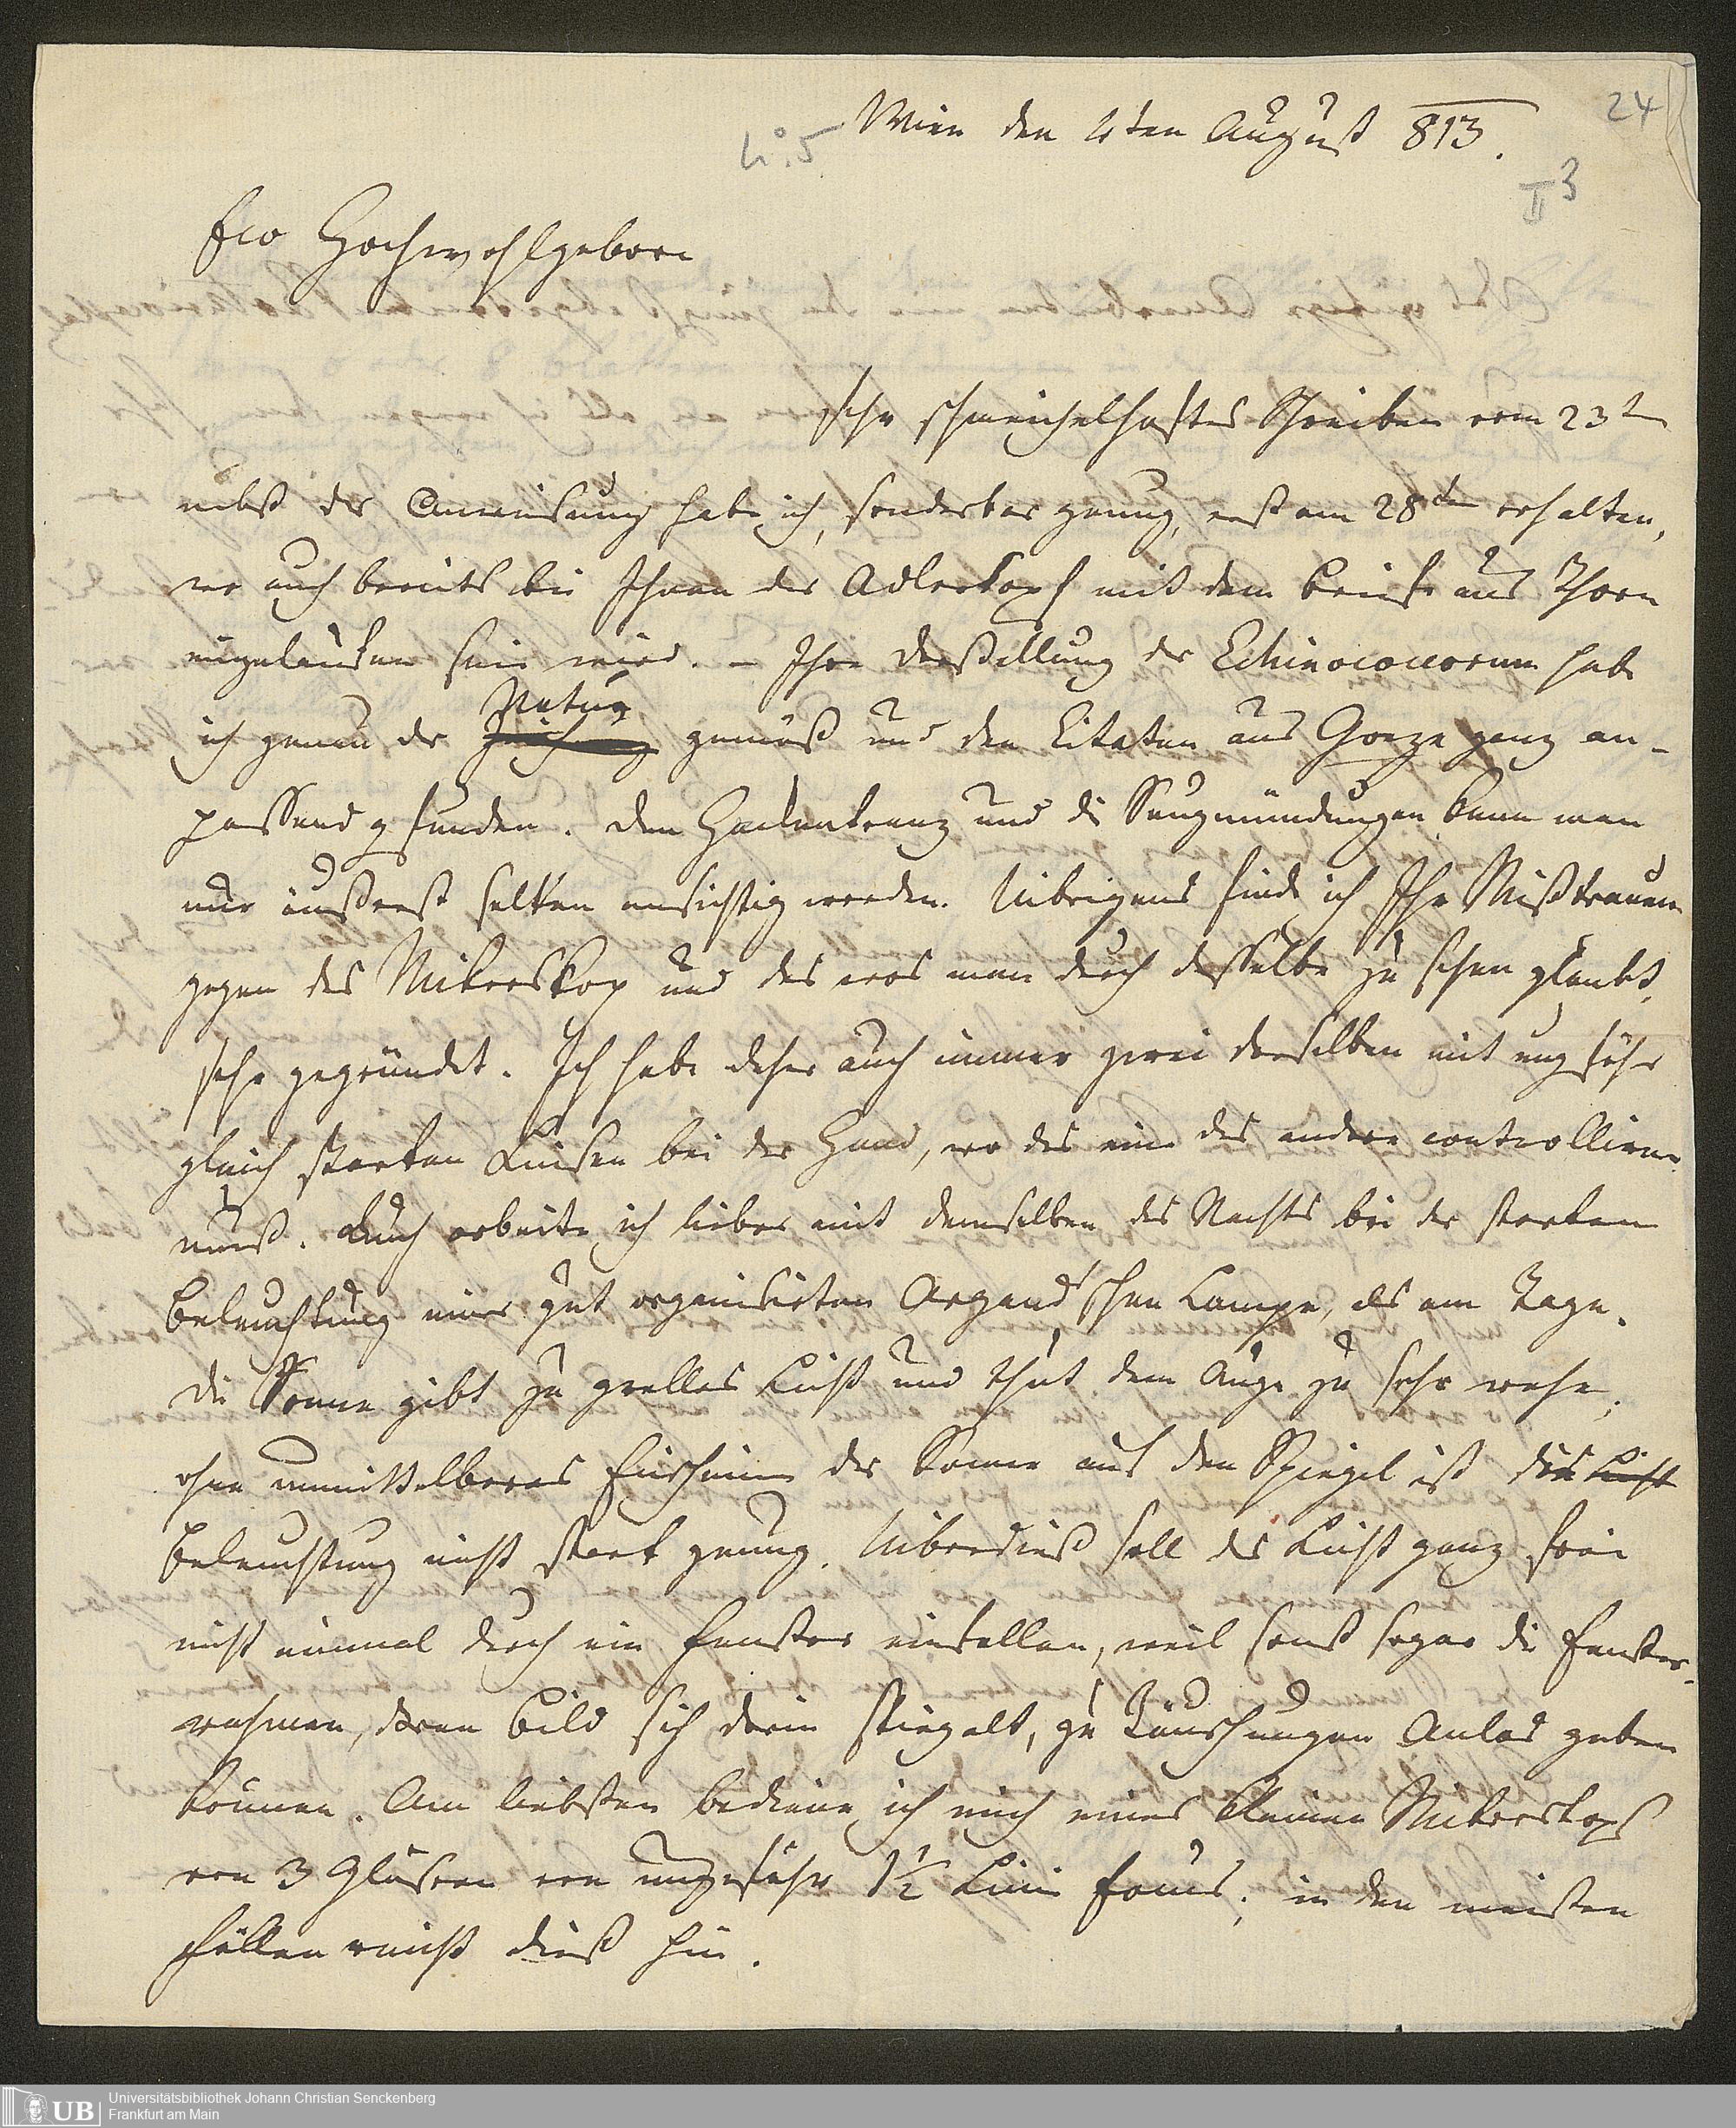 24
No. 5
Wien den 4ten August 813.
II 3
Ew Hochwohlgeborn
sehr schmeichelhaftes Schreiben vom 23ten
nebst der Anweisung habe ich, sonderbar genug, erst am 28ten erhalten,
wo auch bereits bei Ihnen der Adlerkopf mit dem Briefe aus Thorn
eingelaufen sein wird. – Ihre Darstellung der Echinococcorum habe
ich genau der Natur gemäß und den Citaten aus Goeze ganz an-
passend gefunden. Den Hackenkranz und die Saugmündungen kann man
nur äusserst selten ansichtig werden. Uibrigens finde ich Ihr Mißtrauen
gegen das Mikroskop und das was man durch dasselbe zu sehen glaubt,
sehr gegründet. Ich habe daher auch immer zwei derselben mit ungefähr
gleich starken Linsen bei der Hand, wo das eine das andere controlliren
muß. Auch arbeite ich lieber mit demselben des Nachts bei der starken
Beleuchtung einer gut organisirten Argand'schen Lampe, als am Tage.
Die Sonne gibt zu grelles Licht und thut dem Auge zu sehr wehe,
ohne unmittelbares Einscheinen der Sonne auf den Spiegel ist die Licht
Beleuchtung nicht stark genug. Uiberdieß soll das Licht ganz frei
nicht einmal durch ein Fenster einfallen, weil sonst sogar die Fenster-
rahmen, deren Bild sich darin spiegelt, zu Täuschungen Anlas geben
können. Am liebsten bediene ich mich eines kleinen Mikroskops
von 3 Gläsern von ungefähr 1½ Linie Focus; in den meisten
Fällen reicht dieß hin.
UB
Universitätsbibliothek Johann Christian Senckenberg
Frankfurt am Main